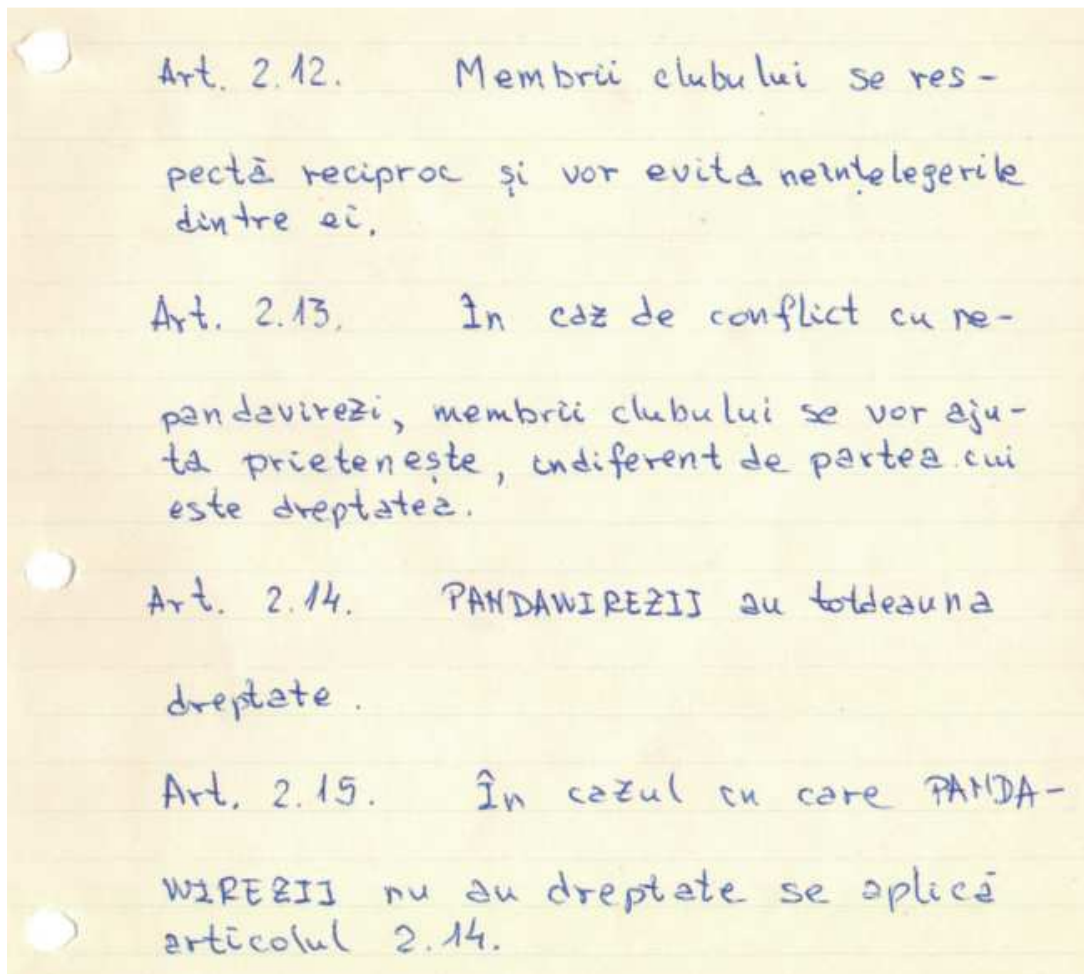 Art. 2.12. Membrii clubului se res-
pectă reciproc și vor evita neînțelegerile
dintre ei.
Art. 2.13. În caz de conflict cu ne-
pandavirezi, membrii clubului se vor aju-
ta prietenește, indiferent de partea cui
este dreptatea.
Art. 2.14. PANDAWIREZII au totdeauna
dreptate.
Art. 2.15. În cazul în care PANDA-
WIREZII nu au dreptate se aplică
articolul 2.14.